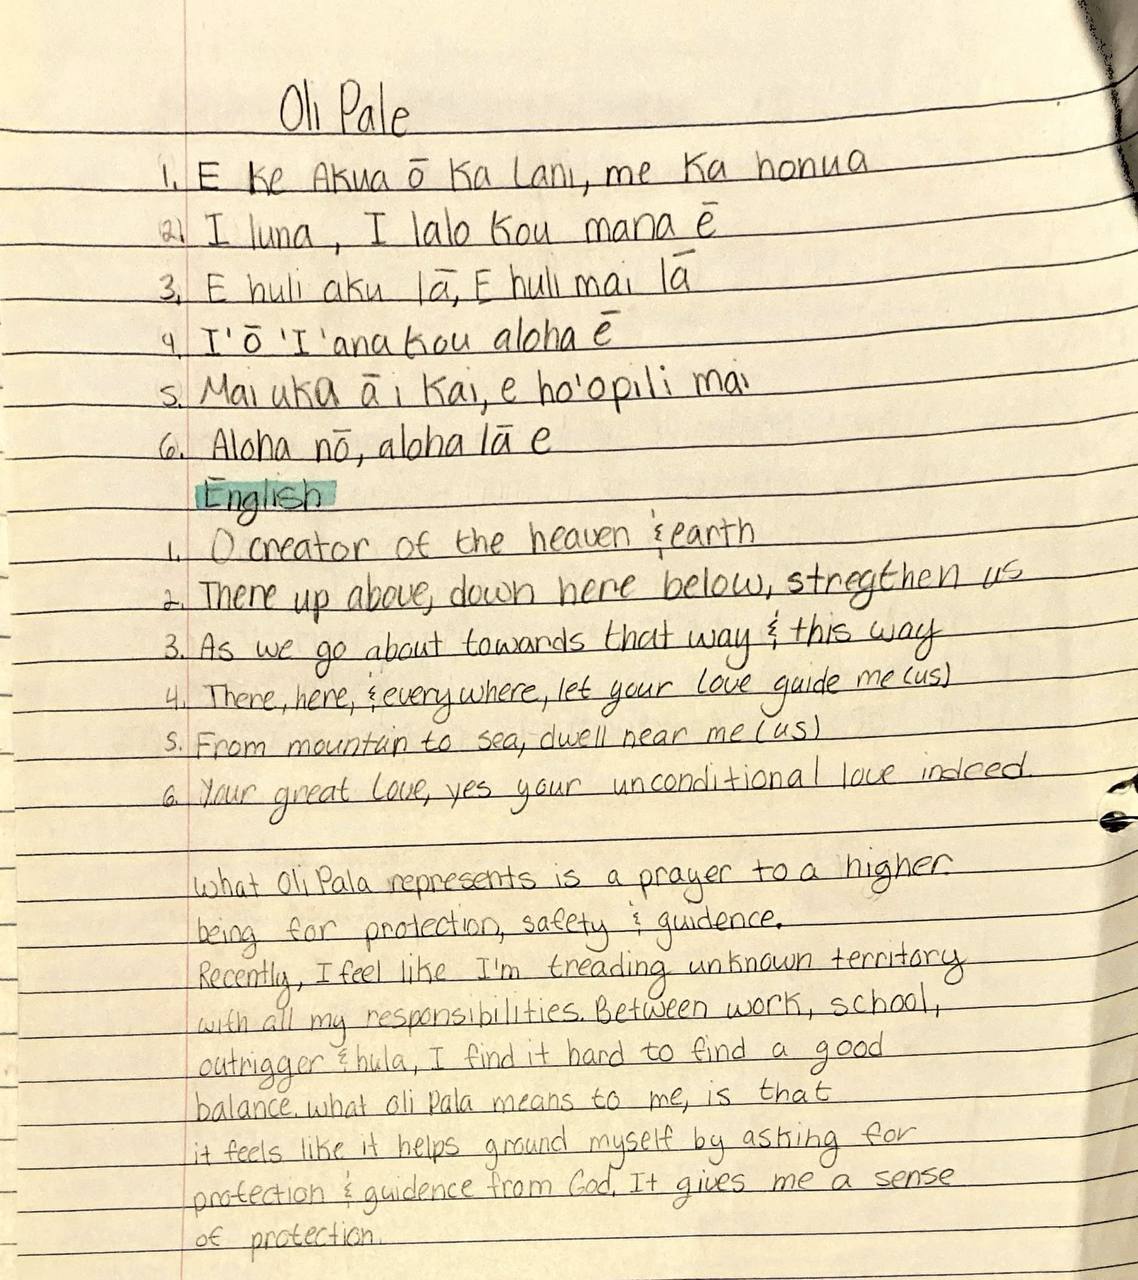 Oli Pale
1. E Ke Akua ō Ka Lani, me Ka honua
2. I luna, I lalo Kou mana ē
3. E huli aku lā, E huli mai lā
4. I'ō 'I 'ana Kou aloha ē
5. Mai uka ā i Kai, e ho'opili mai
6. Aloha nō, aloha lā e
English
1. O creator of the heaven & earth
2. There up above, down here below, stregthen us
3. As we go about towards that way & this way
4. There, here, & everywhere, let your love guide me (us)
5. From mountain to sea, dwell near me (us)
6. Your great love, yes your unconditional love indeed.
What Oli Pala represents is a prayer to a higher
being for protection, safety & guidence.
Recently, I feel like I'm treading unknown territory
with all my responsibilities. Between work, school,
outrigger & hula, I find it hard to find a good
balance. What oli pala means to me, is that
it feels like it helps ground myself by asking for
protection & guidence from God. It gives me a sense
of protection.